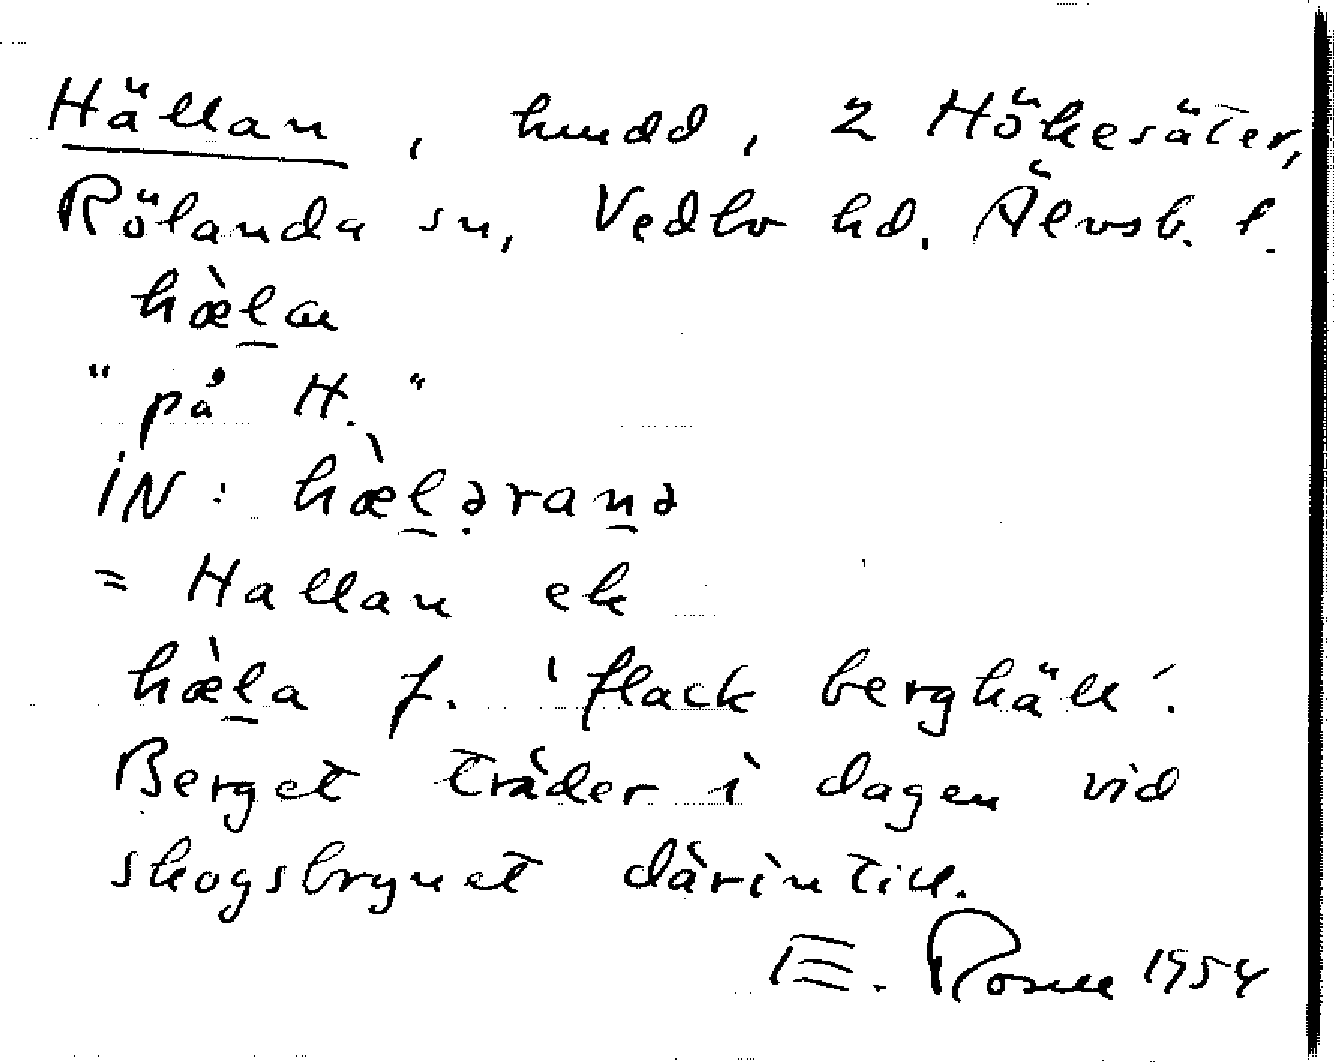 Hällan, hmdd, 2 Hökesäter,
Rölanda sn, Vedbo hd. Älvsb. l.
hæ̀l̠an
"på H."
iN: hæ̀l̠ə̣ran̠ə
= Hallan ek
hæ̀l̠a f. 'flack berghäll'.
Berget träder i dagen vid
skogsbrynet därintill.
E. Rosell 1954